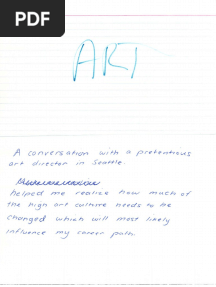 PDF
ART
A conversation with a pretentious
art director in Seattle.
helped me realize how much of
the high art culture needs to be
changed which will most likely
influence my career path.